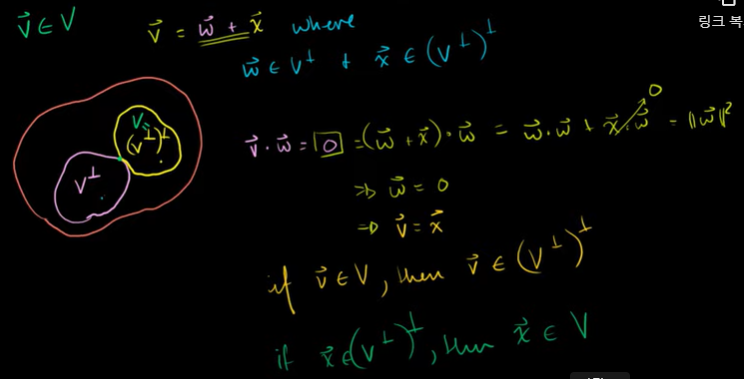 v⃗ ∈ V
v⃗ = w⃗ + x⃗ where
w⃗ ∈ V⊥ + x⃗ ∈ (V⊥)⊥
링크 복
V =
(V⊥)⊥
V⊥
v⃗ · w⃗ = 0 = (w⃗ + x⃗) · w⃗ = w⃗ · w⃗ + x⃗ · w⃗ 0 = ||w⃗||²
⇒ w⃗ = 0
⇒ v⃗ = x⃗
if v⃗ ∈ V, then v⃗ ∈ (V⊥)⊥
if x⃗ ∈ (V⊥)⊥, then x⃗ ∈ V